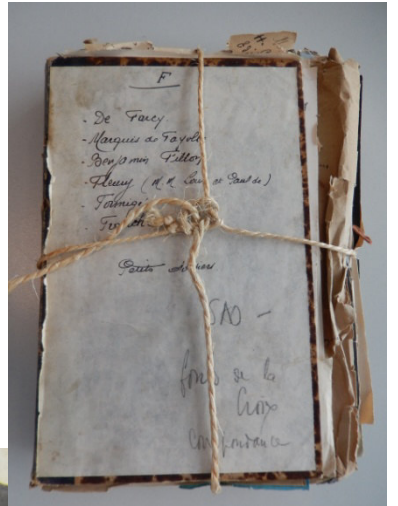 F
- De Farcy
- Marquis de Fayolle
- Benjamin Fillon
- Fleury (M.M. de
- Formigé
Petits
SAO -
fonds de la
Croix
correspondance